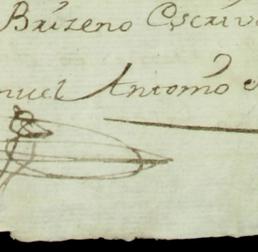 Brizeno Escriv
nuel Antonio